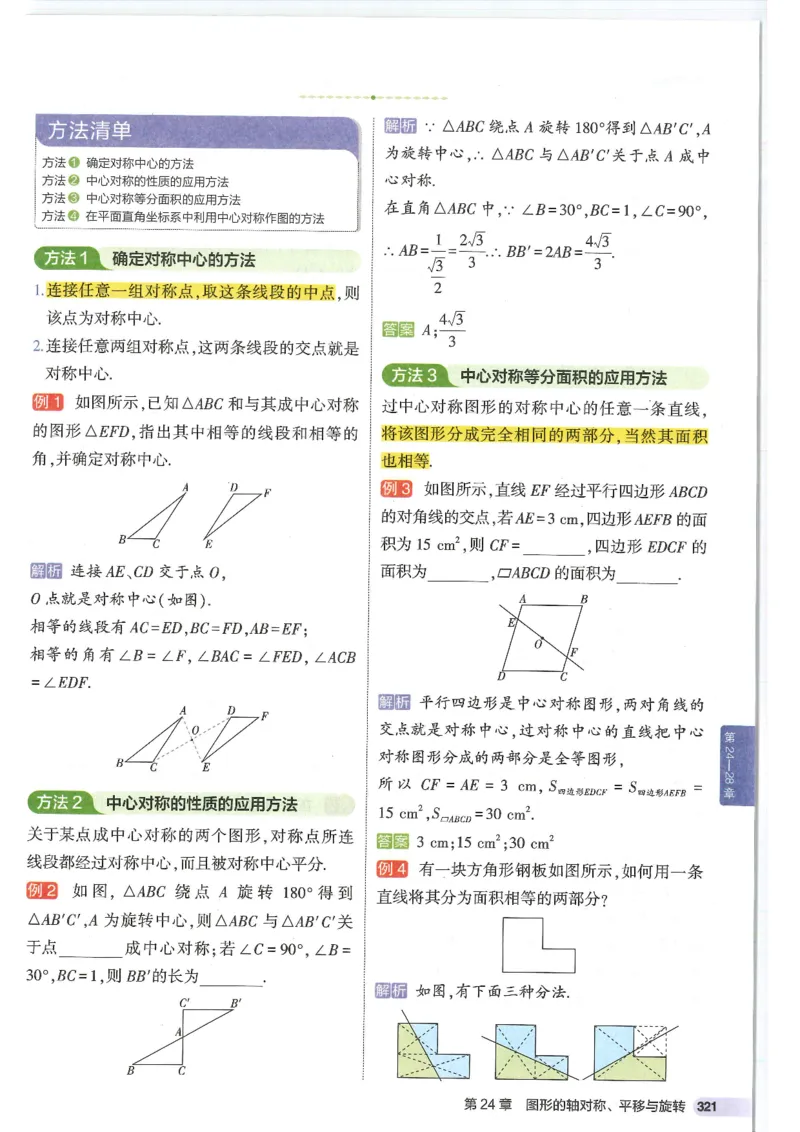 方法清单
方法① 确定对称中心的方法
方法② 中心对称的性质的应用方法
方法③ 中心对称等分面积的应用方法
方法④ 在平面直角坐标系中利用中心对称作图的方法
方法1 确定对称中心的方法
1.连接任意一组对称点,取这条线段的中点,则
该点为对称中心.
2.连接任意两组对称点,这两条线段的交点就是
对称中心.
例1 如图所示,已知△ABC和与其成中心对称
的图形△EFD,指出其中相等的线段和相等的
角,并确定对称中心.
A D F
B C E
解析 连接AE、CD交于点O,
O点就是对称中心(如图).
相等的线段有AC=ED,BC=FD,AB=EF;
相等的角有∠B=∠F,∠BAC=∠FED,∠ACB
=∠EDF.
A D F
O
B C E
方法2 中心对称的性质的应用方法
关于某点成中心对称的两个图形,对称点所连
线段都经过对称中心,而且被对称中心平分.
例2 如图,△ABC绕点A旋转180°得到
△AB′C′,A为旋转中心,则△ABC与△AB′C′关
于点______成中心对称;若∠C=90°,∠B=
30°,BC=1,则BB′的长为______.
C′ B′
A
B C
解析 ∵△ABC绕点A旋转180°得到△AB′C′,A
为旋转中心,∴△ABC与△AB′C′关于点A成中
心对称.
在直角△ABC中,∵∠B=30°,BC=1,∠C=90°,
∴AB=1/(√3/2)=2√3/3.∴BB′=2AB=4√3/3.
答案 A;4√3/3
方法3 中心对称等分面积的应用方法
过中心对称图形的对称中心的任意一条直线,
将该图形分成完全相同的两部分,当然其面积
也相等.
例3 如图所示,直线EF经过平行四边形ABCD
的对角线的交点,若AE=3 cm,四边形AEFB的面
积为15 cm²,则CF=______,四边形EDCF的
面积为______,▱ABCD的面积为______.
A B
E
O
F
D C
解析 平行四边形是中心对称图形,两对角线的
交点就是对称中心,过对称中心的直线把中心
对称图形分成的两部分是全等图形,
所以CF=AE=3 cm,S四边形EDCF=S四边形AEFB=
15 cm²,S▱ABCD=30 cm².
答案 3 cm;15 cm²;30 cm²
例4 有一块方角形钢板如图所示,如何用一条
直线将其分为面积相等的两部分?
解析 如图,有下面三种分法.
第24—28章
第24章 图形的轴对称、平移与旋转 321